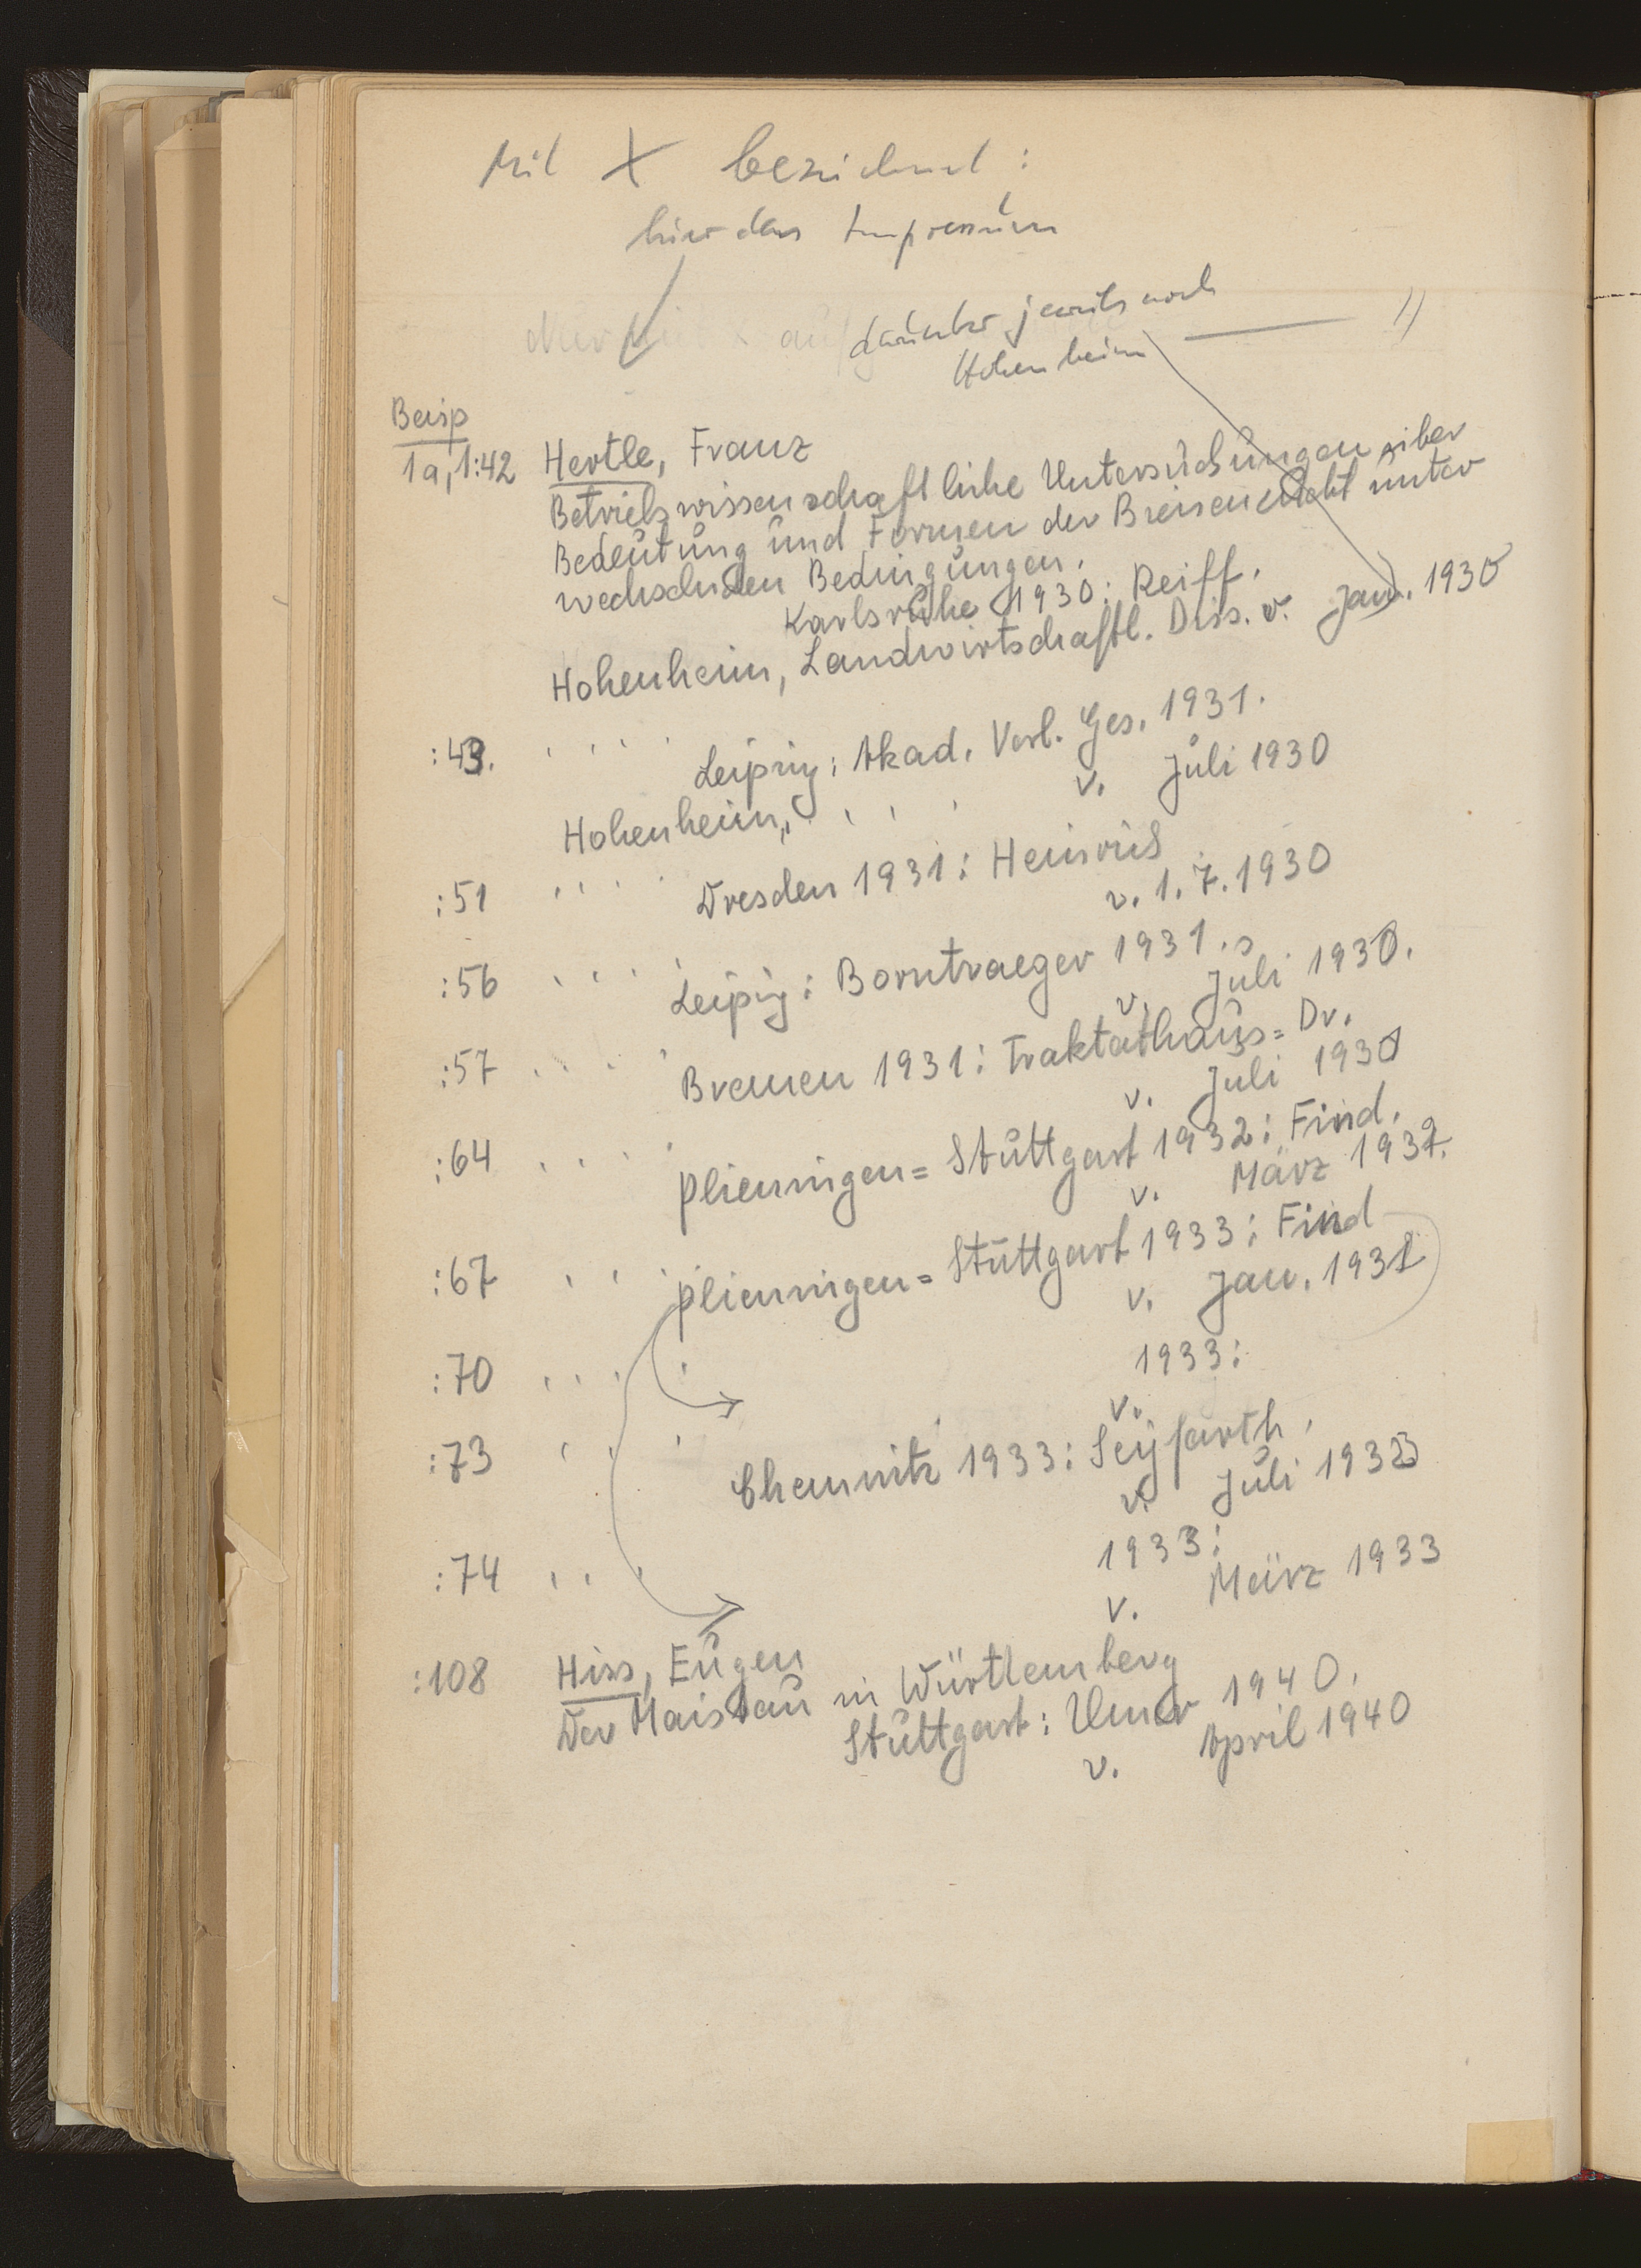 Mit X bezeichnet:
hier das Impressum
darunter jeweils noch
Hohenheim
Beisp
1a, 1:42 Hertle, Franz
Betriebswissenschaftliche Untersuchungen über
Bedeutung und Formen der Bienenzucht unter
wechselnden Bedingungen.
Karlsruhe 1930: Reiff.
Hohenheim, Landwirtschaftl. Diss. v. Jan. 1930
:43. . . . . Leipzig: Akad. Verl. Ges. 1931.
Hohenheim, . . . v. Juli 1930
:51 . . . . Dresden 1931:
v. 1.7.1930
:56 . . . . Leipzig: Borntraeger 1931.
v. Juli 1930.
:57 . . . . Bremen 1931: Traktathaus= Dr.
v. Juli 1930
:64 . . . . Plieningen= Stuttgart 1932: Find.
v. März 1932.
:67 . . . Plieningen= Stuttgart 1933: Find
v. Jan. 1931
:70 . . . . 1933:
v.
:73 . . . Chemnitz 1933: Seyfarth.
v. Juli 1933
:74 . . . 1933:
v. März 1933
:108 Hiss, Eugen
Der Maisbau in Württemberg
Stuttgart: Ulmer 1940.
v. April 1940